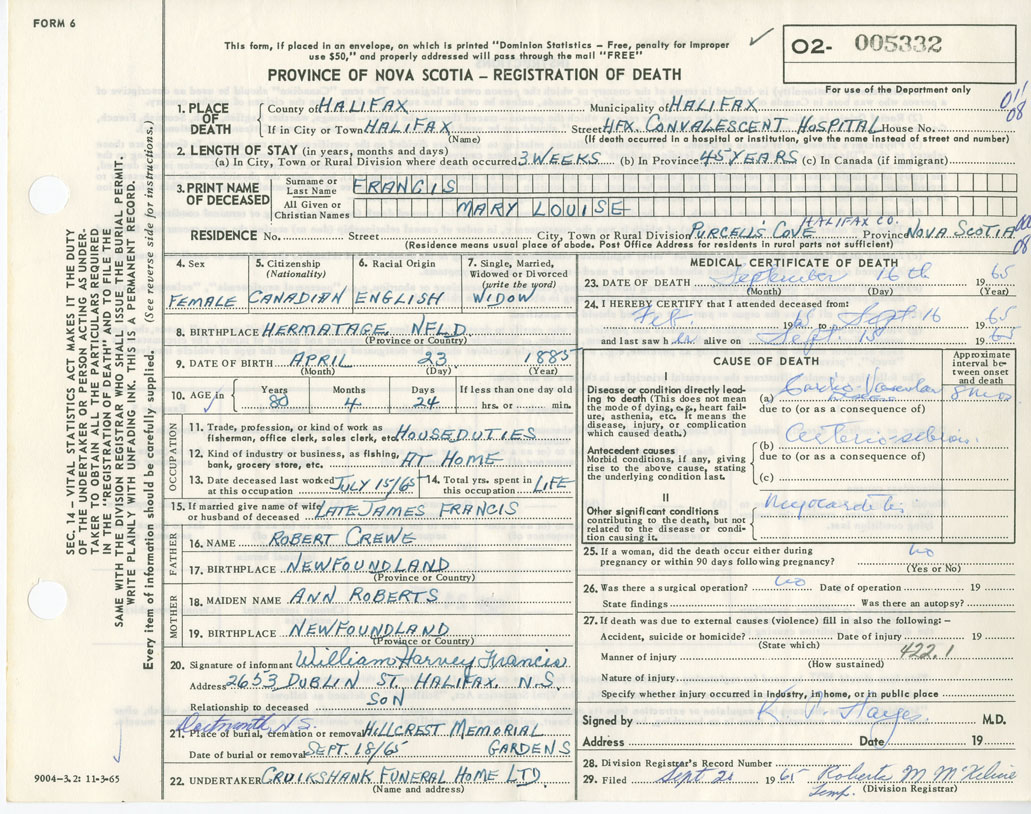 FORM 6
This form, if placed in an envelope, on which is printed "Dominion Statistics – Free, penalty for improper
use $50," and properly addressed will pass through the mail "FREE"
PROVINCE OF NOVA SCOTIA – REGISTRATION OF DEATH
O2- 005332
For use of the Department only
1. PLACE OF DEATH County of HALIFAX Municipality of HALIFAX
If in City or Town HALIFAX (Name) Street HFX. CONVALESCENT HOSPITAL House No.
(If death occurred in a hospital or institution, give the name instead of street and number)
2. LENGTH OF STAY (in years, months and days)
(a) In City, Town or Rural Division where death occurred 3 WEEKS (b) In Province 45 YEARS (c) In Canada (if immigrant)
3. PRINT NAME OF DECEASED Surname or Last Name FRANCIS
All Given or Christian Names MARY LOUISE
RESIDENCE No. Street City, Town or Rural Division PURCELL'S COVE HALIFAX CO. Province NOVA SCOTIA
(Residence means usual place of abode. Post Office Address for residents in rural parts not sufficient)
4. Sex FEMALE
5. Citizenship (Nationality) CANADIAN
6. Racial Origin ENGLISH
7. Single, Married, Widowed or Divorced (write the word) WIDOW
8. BIRTHPLACE HERMATAGE, NFLD.
(Province or Country)
9. DATE OF BIRTH APRIL 23 1885
(Month) (Day) (Year)
10. AGE in Years 80 Months 4 Days 24 If less than one day old hrs. or min.
OCCUPATION
11. Trade, profession, or kind of work as
fisherman, office clerk, sales clerk, etc. HOUSEDUTIES
12. Kind of industry or business, as fishing,
bank, grocery store, etc. AT HOME
13. Date deceased last worked at this occupation JULY 15/65 14. Total yrs. spent in this occupation LIFE
15. If married give name of wife
or husband of deceased LATE JAMES FRANCIS
FATHER
16. NAME ROBERT CREWE
17. BIRTHPLACE NEWFOUNDLAND
(Province or Country)
MOTHER
18. MAIDEN NAME ANN ROBERTS
19. BIRTHPLACE NEWFOUNDLAND
(Province or Country)
20. Signature of informant William Harvey Francis
Address 2653 DUBLIN ST. HALIFAX. N.S.
Relationship to deceased SON
Dartmouth N.S.
21. Place of burial, cremation or removal HILLCREST MEMORIAL
Date of burial or removal SEPT. 18/65 GARDENS
22. UNDERTAKER CRUIKSHANK FUNERAL HOME LTD.
(Name and address)
MEDICAL CERTIFICATE OF DEATH
23. DATE OF DEATH September 16th 1965
(Month) (Day) (Year)
24. I HEREBY CERTIFY that I attended deceased from:
Feb. 1965 to Sept. 16 1965
and last saw h alive on Sept. 15 1965
CAUSE OF DEATH
Approximate interval between onset and death
I
Disease or condition directly leading to death (This does not mean the mode of dying, e.g., heart failure, asthenia, etc. It means the disease, injury, or complication which caused death.)
(a) Cardio-Vascular
due to (or as a consequence of)
Antecedent causes
Morbid conditions, if any, giving rise to the above cause, stating the underlying condition last.
(b)
due to (or as a consequence of)
(c)
II
Other significant conditions
contributing to the death, but not related to the disease or condition causing it.
Myocarditis
25. If a woman, did the death occur either during
pregnancy or within 90 days following pregnancy? no
(Yes or No)
26. Was there a surgical operation? no Date of operation 19
State findings Was there an autopsy?
27. If death was due to external causes (violence) fill in also the following: –
Accident, suicide or homicide? Date of injury 19
(State which)
Manner of injury 422.1
(How sustained)
Nature of injury
Specify whether injury occurred in industry, in home, or in public place
Signed by M.D.
Address Date 19
28. Division Registrar's Record Number
29. Filed Sept 20 1965 Roberta M
Temp. (Division Registrar)
SEC. 14 – VITAL STATISTICS ACT MAKES IT THE DUTY
OF THE UNDERTAKER OR PERSON ACTING AS UNDER-
TAKER TO OBTAIN ALL THE PARTICULARS REQUIRED
IN THE "REGISTRATION OF DEATH" AND TO FILE THE
SAME WITH THE DIVISION REGISTRAR WHO SHALL ISSUE THE BURIAL PERMIT.
WRITE PLAINLY WITH UNFADING INK. THIS IS A PERMANENT RECORD.
Every item of information should be carefully supplied. (See reverse side for instructions.)
9004-3.2: 11-3-65